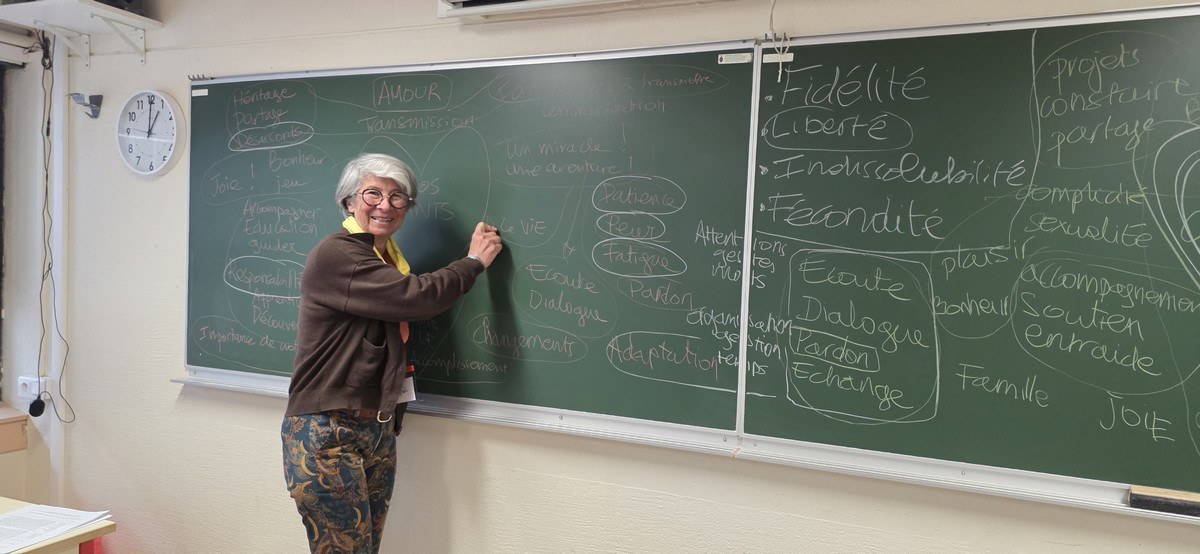 Héritage
Partage
Désaccords
AMOUR
Transmission
à transmettre
communication
Joie ! Bonheur
jeu
Accompagner
Education
guider
Responsabilité
Importance de
un miracle !
une aventure !
VIE
Ecoute
Dialogue
Changements
Accomplissement
Patience
Peur
Fatigue
Pardon
Adaptation
Attentions
gestes
mots
organisation
gestion
temps
• Fidélité
• Liberté
• Indissolubilité
• Fécondité
Ecoute
Dialogue
Pardon
Echange
plaisir
Bonheur
Famille
projets
construire
partage
complicité
sexualité
accompagnement
Soutien
entraide
JOIE